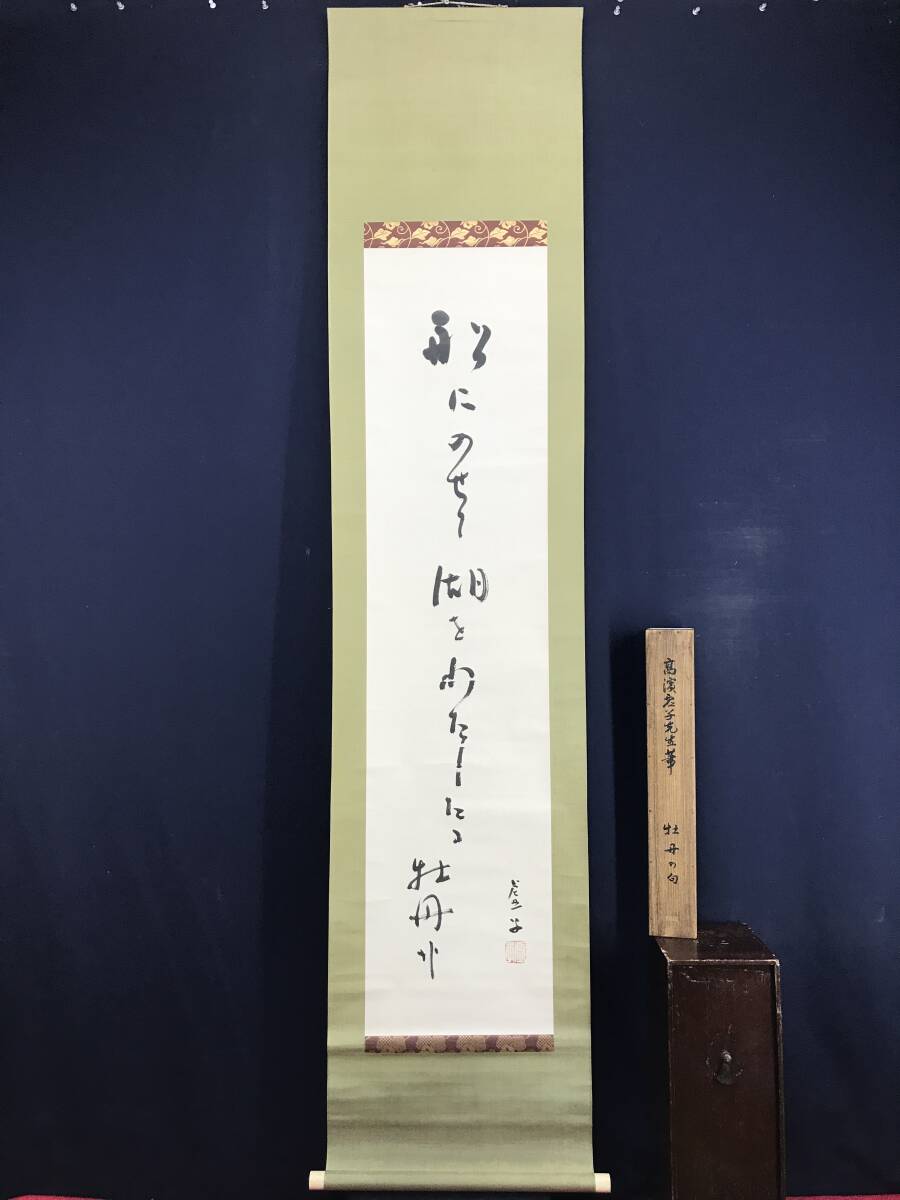 船にのせて湖をわたしたる牡丹か
虚子
高濱虚子先生筆
牡丹の句